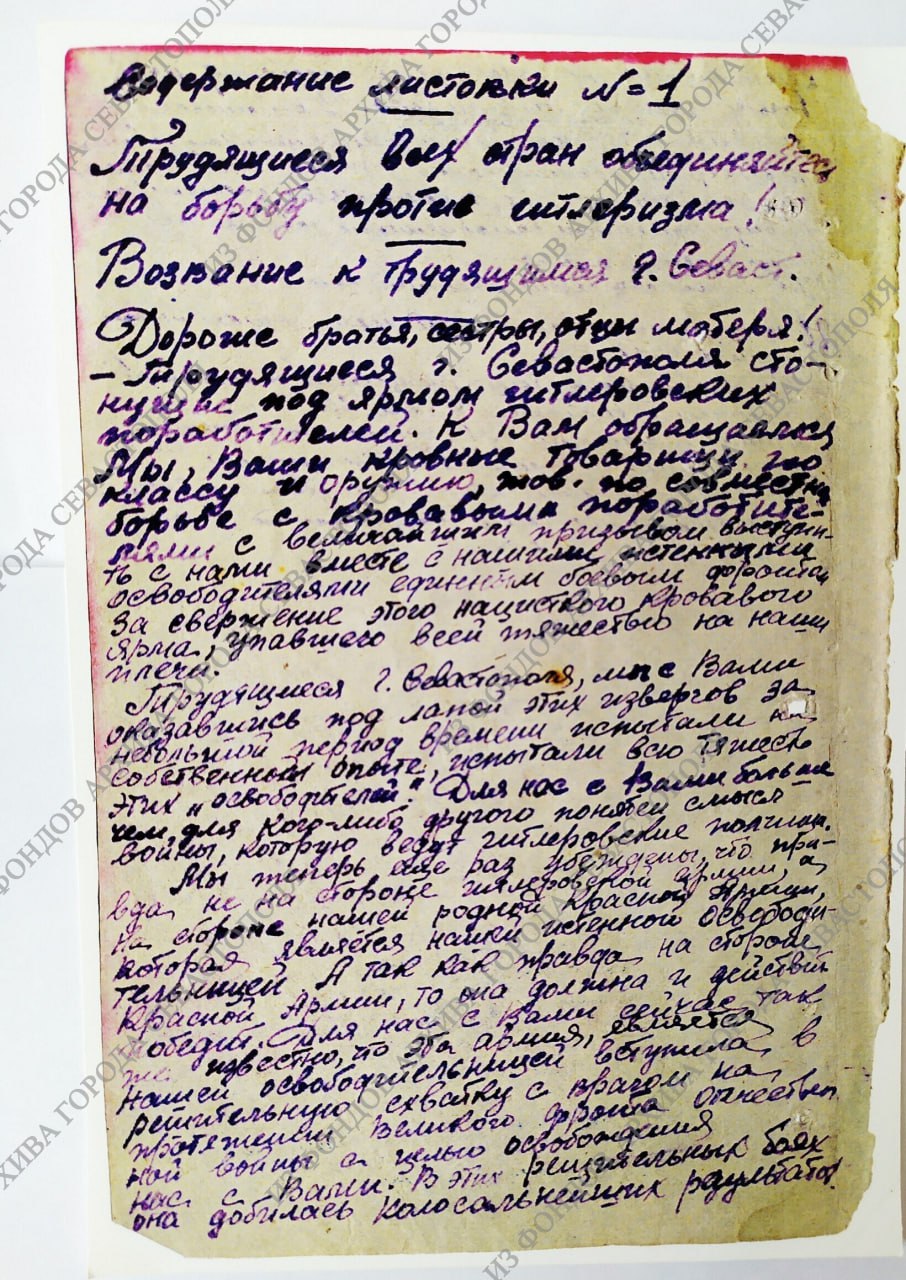 Содержание листовки N=1
Трудящиеся всех стран объединяйтесь
на борьбу против гитлеризма!
Воззвание к трудящимся г. Севаст.
Дороже братья, сестры, отцы матеря!
– Трудящиеся г. Севастополя, сто-
нущие под ярмом гитлеровских
поработителей. К Вам обращаемся
Мы, Ваши кровные товарищи по
классу и оружию, тов. по совместн.
борьбе с кровавыми поработите-
лями с величайшим призывом выступи-
ть с нами вместе с нашими истенными
освободителями единным боевым фронтом
за свержение этого нацисткого кровавого
ярма, упавшего всей тяжестью на наши
плечи.
Трудящиеся г. Севастополя, мы с Вами
оказавшись под лапой этих извергов за
небольшой период времени испытали на
собственном опыте, испытали всю тяжесть
этих „освободителей". Для нас с Вами больше
чем для кого-либо другого понятен смысл
войны, которую ведут гитлеровские полчища.
Мы теперь еще раз убеждены, что пра-
вда не на стороне гитлеровской армии, а
на стороне нашей родной Красной Армии,
которая является нашей истенной освободи-
тельницей. А так как правда на стороне
Красной Армии, то она должна и действит
победит. Для нас с Вами сейчас так
же известно, что эта армия, является
нашей освободительницей вступила в
решительную схватку с врагом на
протяжении Великого фронта отечествен
ной войны с целью освобождения
нас с Вами. В этих решительных боях
она добилась колосальнейших результатов.
ИЗ ФОНДОВ АРХИВА ГОРОДА СЕВАСТОПОЛЯ